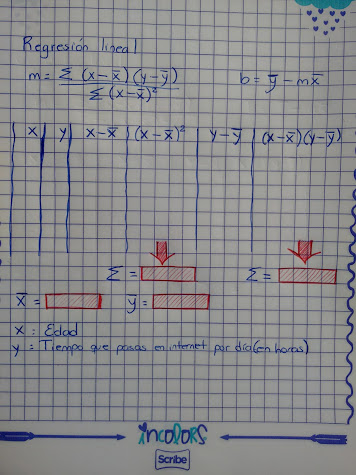 Regresión lineal
m = Σ (x-x̄)(y-ȳ) / Σ (x-x̄)²
b = ȳ - mx̄
x y x-x̄ (x-x̄)² y-ȳ (x-x̄)(y-ȳ)
Σ = Σ =
x̄ = ȳ =
x: Edad
y = Tiempo que pasas en internet por día (en horas)
incolors
Scribe